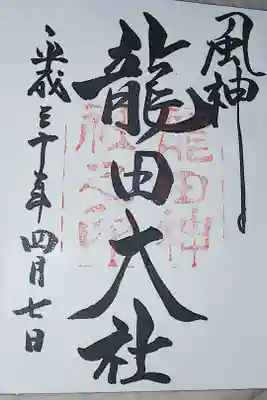 風神
龍田大社
龍田神
社之印
平成三十年四月七日